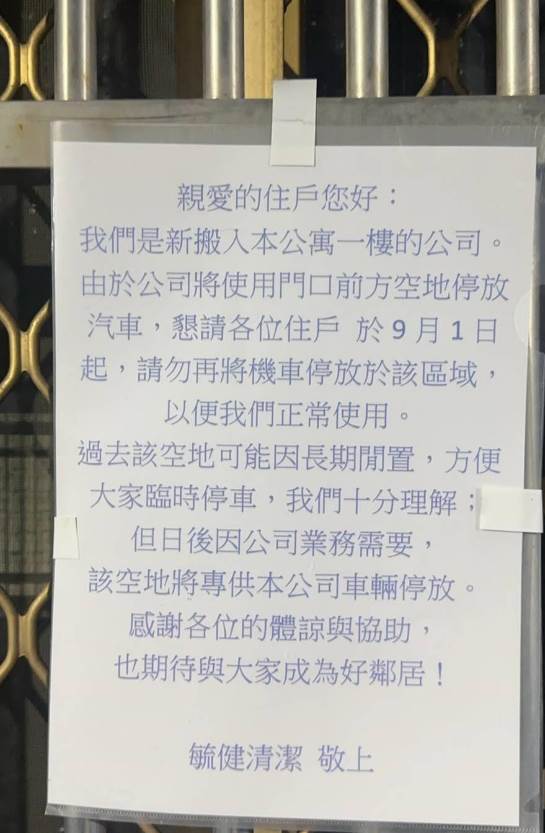 親愛的住戶您好：
我們是新搬入本公寓一樓的公司。
由於公司將使用門口前方空地停放
汽車，懇請各位住戶 於 9 月 1 日
起，請勿再將機車停放於該區域，
以便我們正常使用。
過去該空地可能因長期閒置，方便
大家臨時停車，我們十分理解；
但日後因公司業務需要，
該空地將專供本公司車輛停放。
感謝各位的體諒與協助，
也期待與大家成為好鄰居！
毓健清潔 敬上